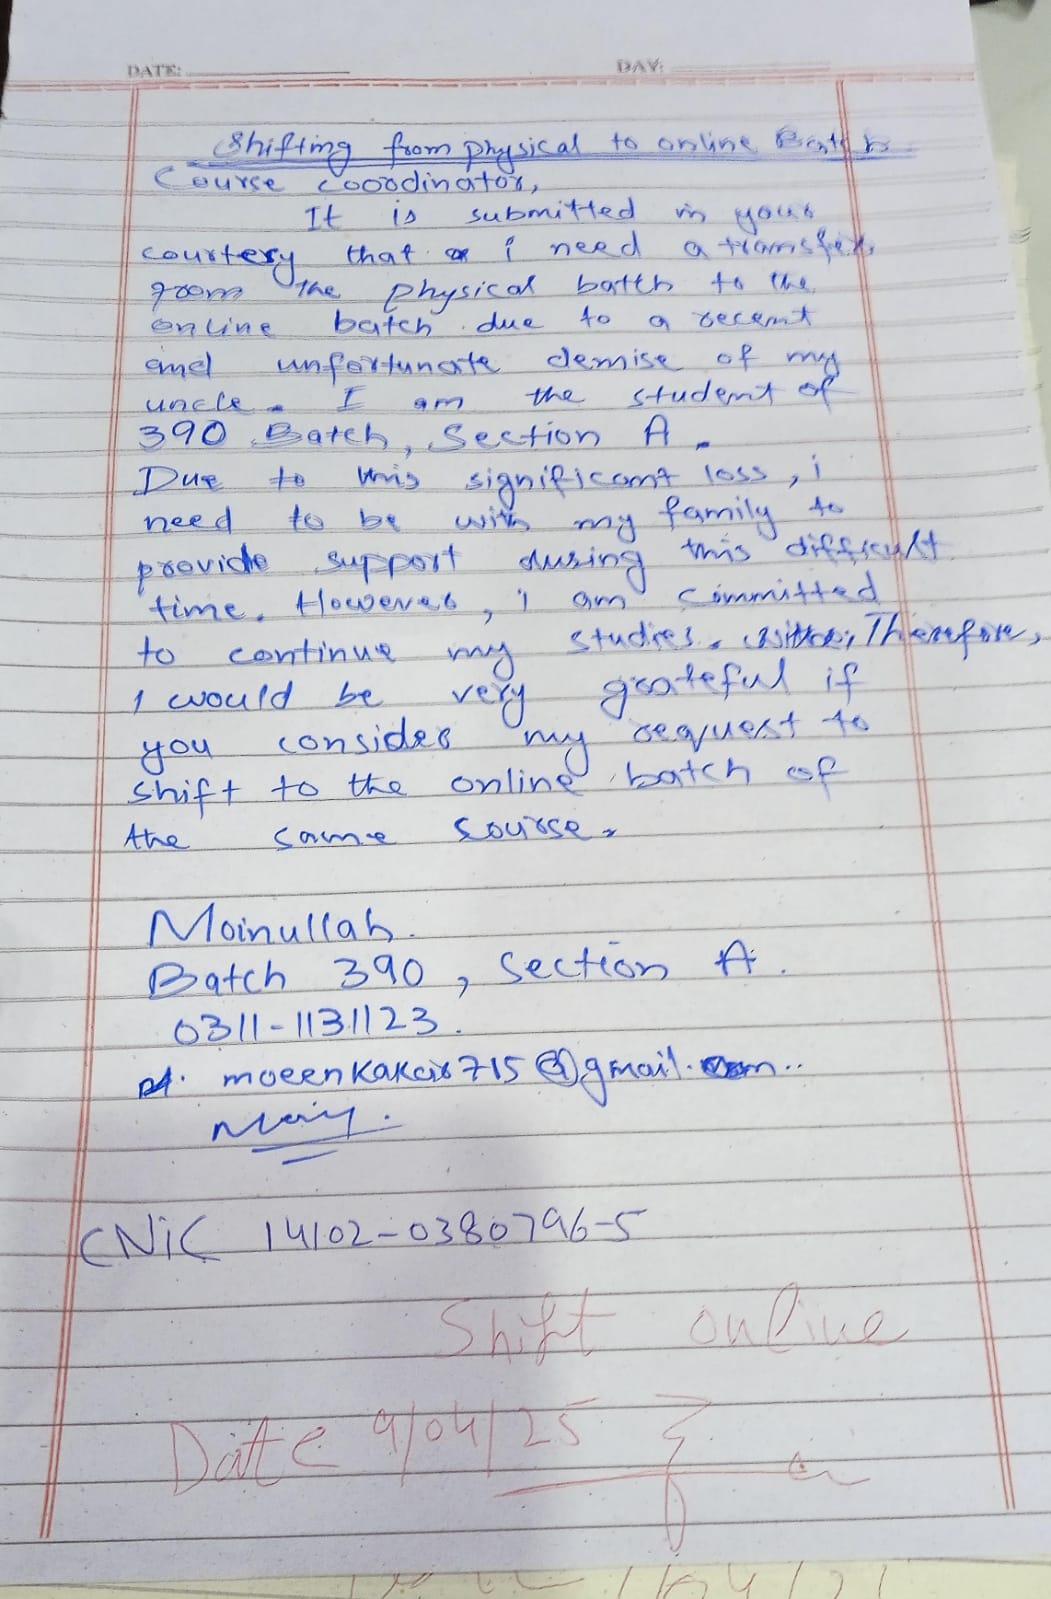 DATE:
DAY:
Shifting from physical to online Batch
Course coordinator,
It is submitted in your
courtery that i need a transfer
from the physical batch to the
online batch due to a recent
and unfortunate demise of my
uncle. I am the student of
390 Batch, Section A.
Due to this significant loss, i
need to be with my family to
provide support during this difficult
time. However, i am committed
to continue my studies. Therefore,
I would be very grateful if
you consider my request to
shift to the online batch of
the same course.
Moinullah.
Batch 390, Section A.
0311-1131123.
moeenkakar715@gmail.com..
CNiC 14102-0380796-5
Shift online
Date 9/04/25